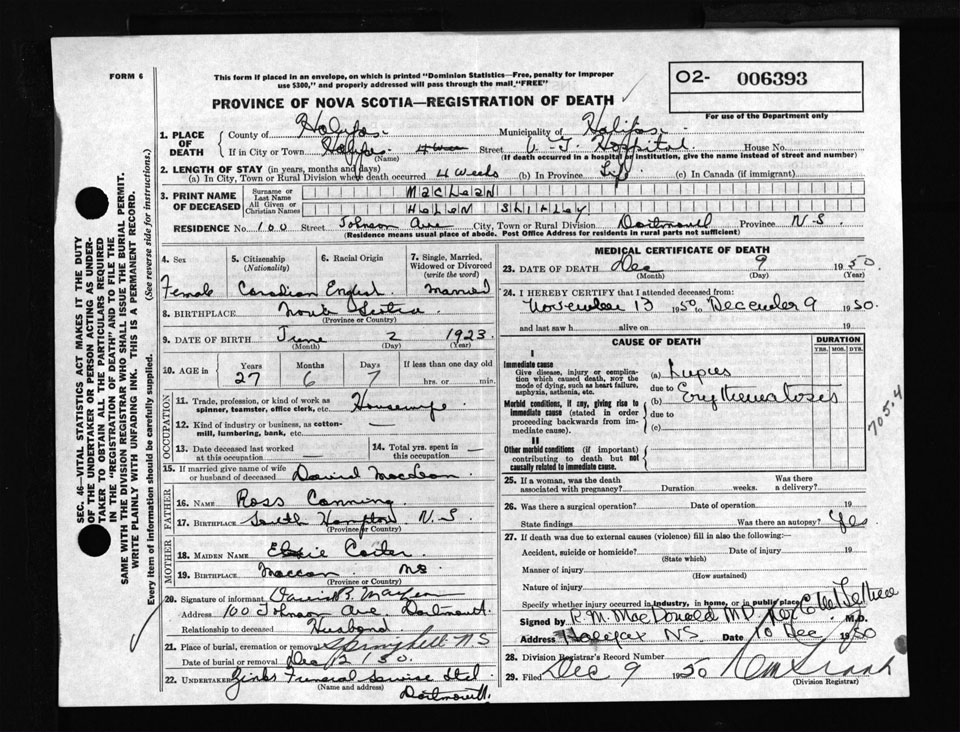 FORM 6
This form if placed in an envelope, on which is printed "Dominion Statistics—Free, penalty for improper
use $300," and properly addressed will pass through the mail "FREE"
O2- 006393
For use of the Department only
PROVINCE OF NOVA SCOTIA—REGISTRATION OF DEATH
1. PLACE OF DEATH
County of Halifax Municipality of Halifax
If in City or Town Halifax (Name) Street V. G. Hospital House No.
(If death occurred in a hospital or institution, give the name instead of street and number)
2. LENGTH OF STAY (in years, months and days)
(a) In City, Town or Rural Division where death occurred 4 weeks (b) In Province Life (c) In Canada (if immigrant)
3. PRINT NAME OF DECEASED
Surname or Last Name MACLEAN
All Given or Christian Names HELEN SHIRLEY
RESIDENCE No. 100 Street Johnson Ave City, Town or Rural Division Dartmouth Province N-S
(Residence means usual place of abode. Post Office Address for residents in rural parts not sufficient)
4. Sex
Female
5. Citizenship (Nationality)
Canadian
6. Racial Origin
English
7. Single, Married, Widowed or Divorced (write the word)
Married
8. BIRTHPLACE Nova Scotia
(Province or Country)
9. DATE OF BIRTH June 2 1923
(Month) (Day) (Year)
10. AGE in Years Months Days If less than one day old
27 6 7 hrs. or min.
OCCUPATION
11. Trade, profession or kind of work as spinner, teamster, office clerk, etc. Housewife
12. Kind of industry or business, as cotton-mill, lumbering, bank, etc. —
13. Date deceased last worked at this occupation —
14. Total yrs. spent in this occupation —
15. If married give name of wife or husband of deceased David MacLean
FATHER
16. NAME Ross Canning
17. BIRTHPLACE South Hampton N.S
(Province or Country)
MOTHER
18. MAIDEN NAME Carter
19. BIRTHPLACE Maccan NS
(Province or Country)
20. Signature of informant David
Address 100 Johnson Ave. Dartmouth
Relationship to deceased Husband
21. Place of burial, cremation or removal Springhill NS
Date of burial or removal Dec 12 / 50.
22. UNDERTAKER Funeral Service Ltd
(Name and address) Dartmouth.
MEDICAL CERTIFICATE OF DEATH
23. DATE OF DEATH Dec 9 1950.
(Month) (Day) (Year)
24. I HEREBY CERTIFY that I attended deceased from:
November 13 1950 to December 9 1950.
and last saw h alive on 19
CAUSE OF DEATH
DURATION
YRS. MOS. DYS.
I
Immediate cause
Give disease, injury or complication which caused death, NOT the mode of dying, such as heart failure, asphyxia, asthenia, etc.
(a) Lupus
due to
Morbid conditions, if any, giving rise to immediate cause (stated in order proceeding backwards from immediate cause).
(b) Erythematosis
due to
(c)
II
Other morbid conditions (if important) contributing to death but not causally related to immediate cause.
705.4
25. If a woman, was the death associated with pregnancy? Duration weeks. Was there a delivery?
26. Was there a surgical operation? Date of operation 19
State findings Was there an autopsy? Yes
27. If death was due to external causes (violence) fill in also the following:—
Accident, suicide or homicide? Date of injury 19
(State which)
Manner of injury
(How sustained)
Nature of injury
Specify whether injury occurred in industry, in home, or in public place
Signed by R. M. MacDonald MD M.D.
Address Halifax NS Date 10 Dec 1950
28. Division Registrar's Record Number
29. Filed Dec 9 1950
(Division Registrar)
SEC. 46—VITAL STATISTICS ACT MAKES IT THE DUTY
OF THE UNDERTAKER OR PERSON ACTING AS UNDER-
TAKER TO OBTAIN ALL THE PARTICULARS REQUIRED
IN THE "REGISTRATION OF DEATH" AND TO FILE THE
SAME WITH THE DIVISION REGISTRAR WHO SHALL ISSUE THE BURIAL PERMIT.
WRITE PLAINLY WITH UNFADING INK. THIS IS A PERMANENT RECORD.
Every item of information should be carefully supplied. (See reverse side for instructions.)